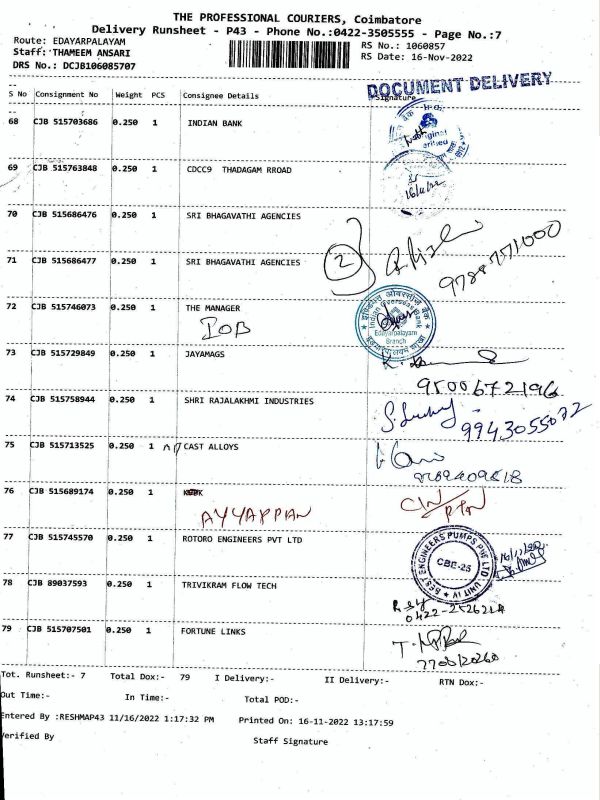 THE PROFESSIONAL COURIERS, Coimbatore
Delivery Runsheet - P43 - Phone No.:0422-3505555 - Page No.:7
Route: EDAYARPALAYAM
RS No.: 1060857
Staff: THAMEEM ANSARI
RS Date: 16-Nov-2022
DRS No.: DCJB106085707
DOCUMENT DELIVERY
S No Consignment No Weight PCS Consignee Details Signature
68 CJB 515703686 0.250 1 INDIAN BANK
69 CJB 515763848 0.250 1 CDCC9 THADAGAM RROAD
70 CJB 515686476 0.250 1 SRI BHAGAVATHI AGENCIES
2
71 CJB 515686477 0.250 1 SRI BHAGAVATHI AGENCIES
72 CJB 515746073 0.250 1 THE MANAGER
IOB
इण्डियन ओवरसीज़ बैंक
Indian Overseas Bank
Edayarpalayam
Branch
73 CJB 515729849 0.250 1 JAYAMAGS
9500672196
74 CJB 515758944 0.250 1 SHRI RAJALAKHMI INDUSTRIES
9943055072
75 CJB 515713525 0.250 1 CAST ALLOYS
76 CJB 515689174 0.250 1
AYYAPPAN
77 CJB 515745570 0.250 1 ROTORO ENGINEERS PVT LTD
BEST ENGINEERS PUMPS PVT LTD-UNIT IV
CBE-25
78 CJB 89037593 0.250 1 TRIVIKRAM FLOW TECH
79 CJB 515707501 0.250 1 FORTUNE LINKS
Tot. Runsheet:- 7 Total Dox:- 79 I Delivery:- II Delivery:- RTN Dox:-
Out Time:- In Time:- Total POD:-
Entered By :RESHMAP43 11/16/2022 1:17:32 PM Printed On: 16-11-2022 13:17:59
Verified By Staff Signature